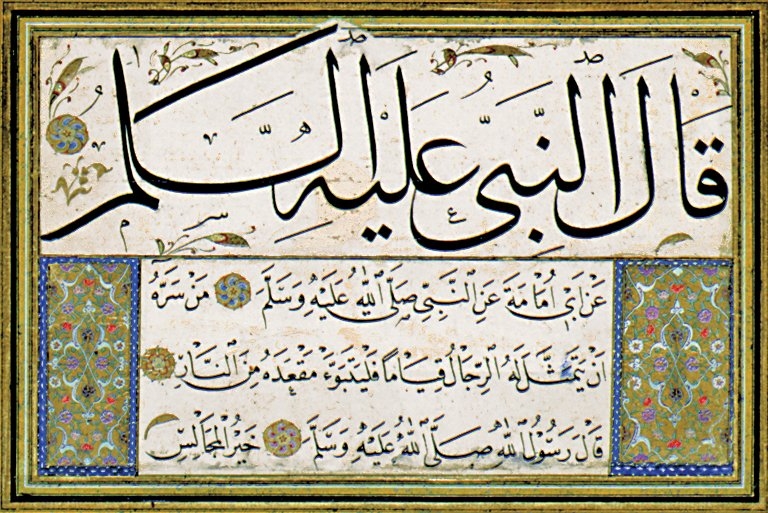 قَالَ النَّبِيُّ عَلَيْهِ السَّلَامُ
عَنْ اَبِي اُمَامَةَ عَنِ النَّبِيِّ صَلَّى اللهُ عَلَيْهِ وَسَلَّمَ مَنْ سَرَّهُ
اَنْ يَتَمَثَّلَ لَهُ الرِّجَالُ قِيَامًا فَلْيَتَبَوَّءْ مَقْعَدَهُ مِنَ النَّارِ
قَالَ رَسُولُ اللهِ صَلَّى اللهُ عَلَيْهِ وَسَلَّمَ خَيْرُ الْمَجَالِسِ